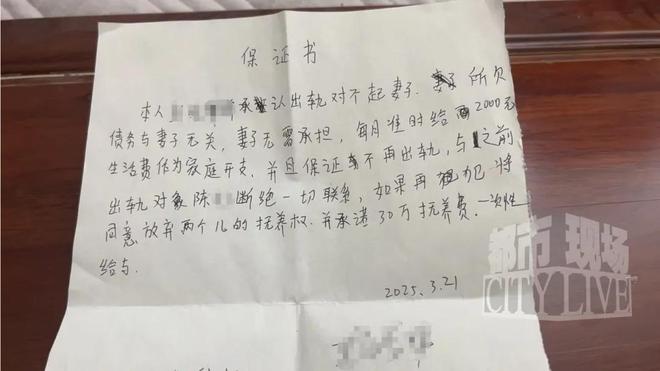 保证书
本人 承认出轨对不起妻子. 所欠
债务与妻子无关, 妻子无需承担, 每月准时给 2000元
生活费作为家庭开支, 并且保证不再出轨, 与之前
出轨对象陈 断绝一切联系, 如果再犯 将
同意放弃两个儿的抚养权. 并承诺30万抚养费. 一次性
给与.
2025.3.21
都市现场
CITY LIVE